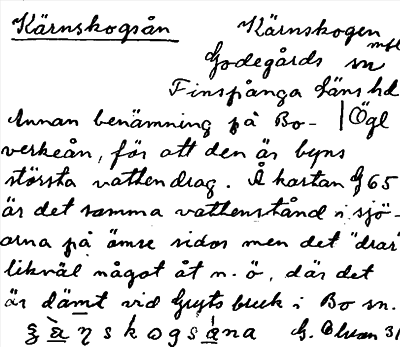 Kärnskogsån Kärnskogen
mfl
Godegårds sn
Finspånga läns hd
Annan benämning på Bo- | Ögl
verkeån, för att den är byns
största vattendrag. Å kartan G 65
är det samma vattenstånd i sjö-
arna på ömse sidor men det "drar"
likväl något åt n. ö., där det
är dämt vid Gryts bruk i Bo sn.
G. Olsson 31